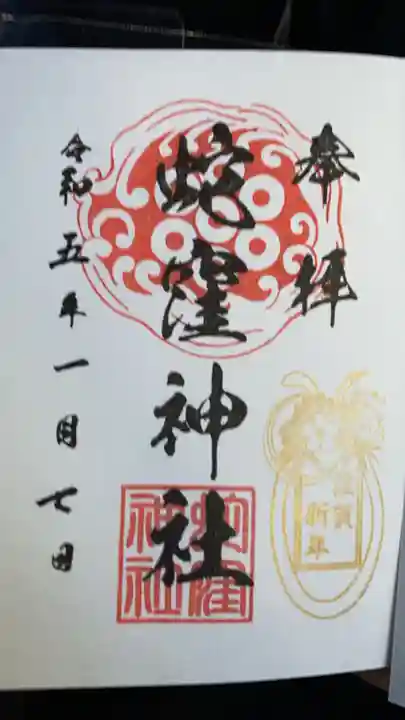 奉拝
蛇窪神社
令和五年一月七日
謹賀
新年
蛇窪
神社